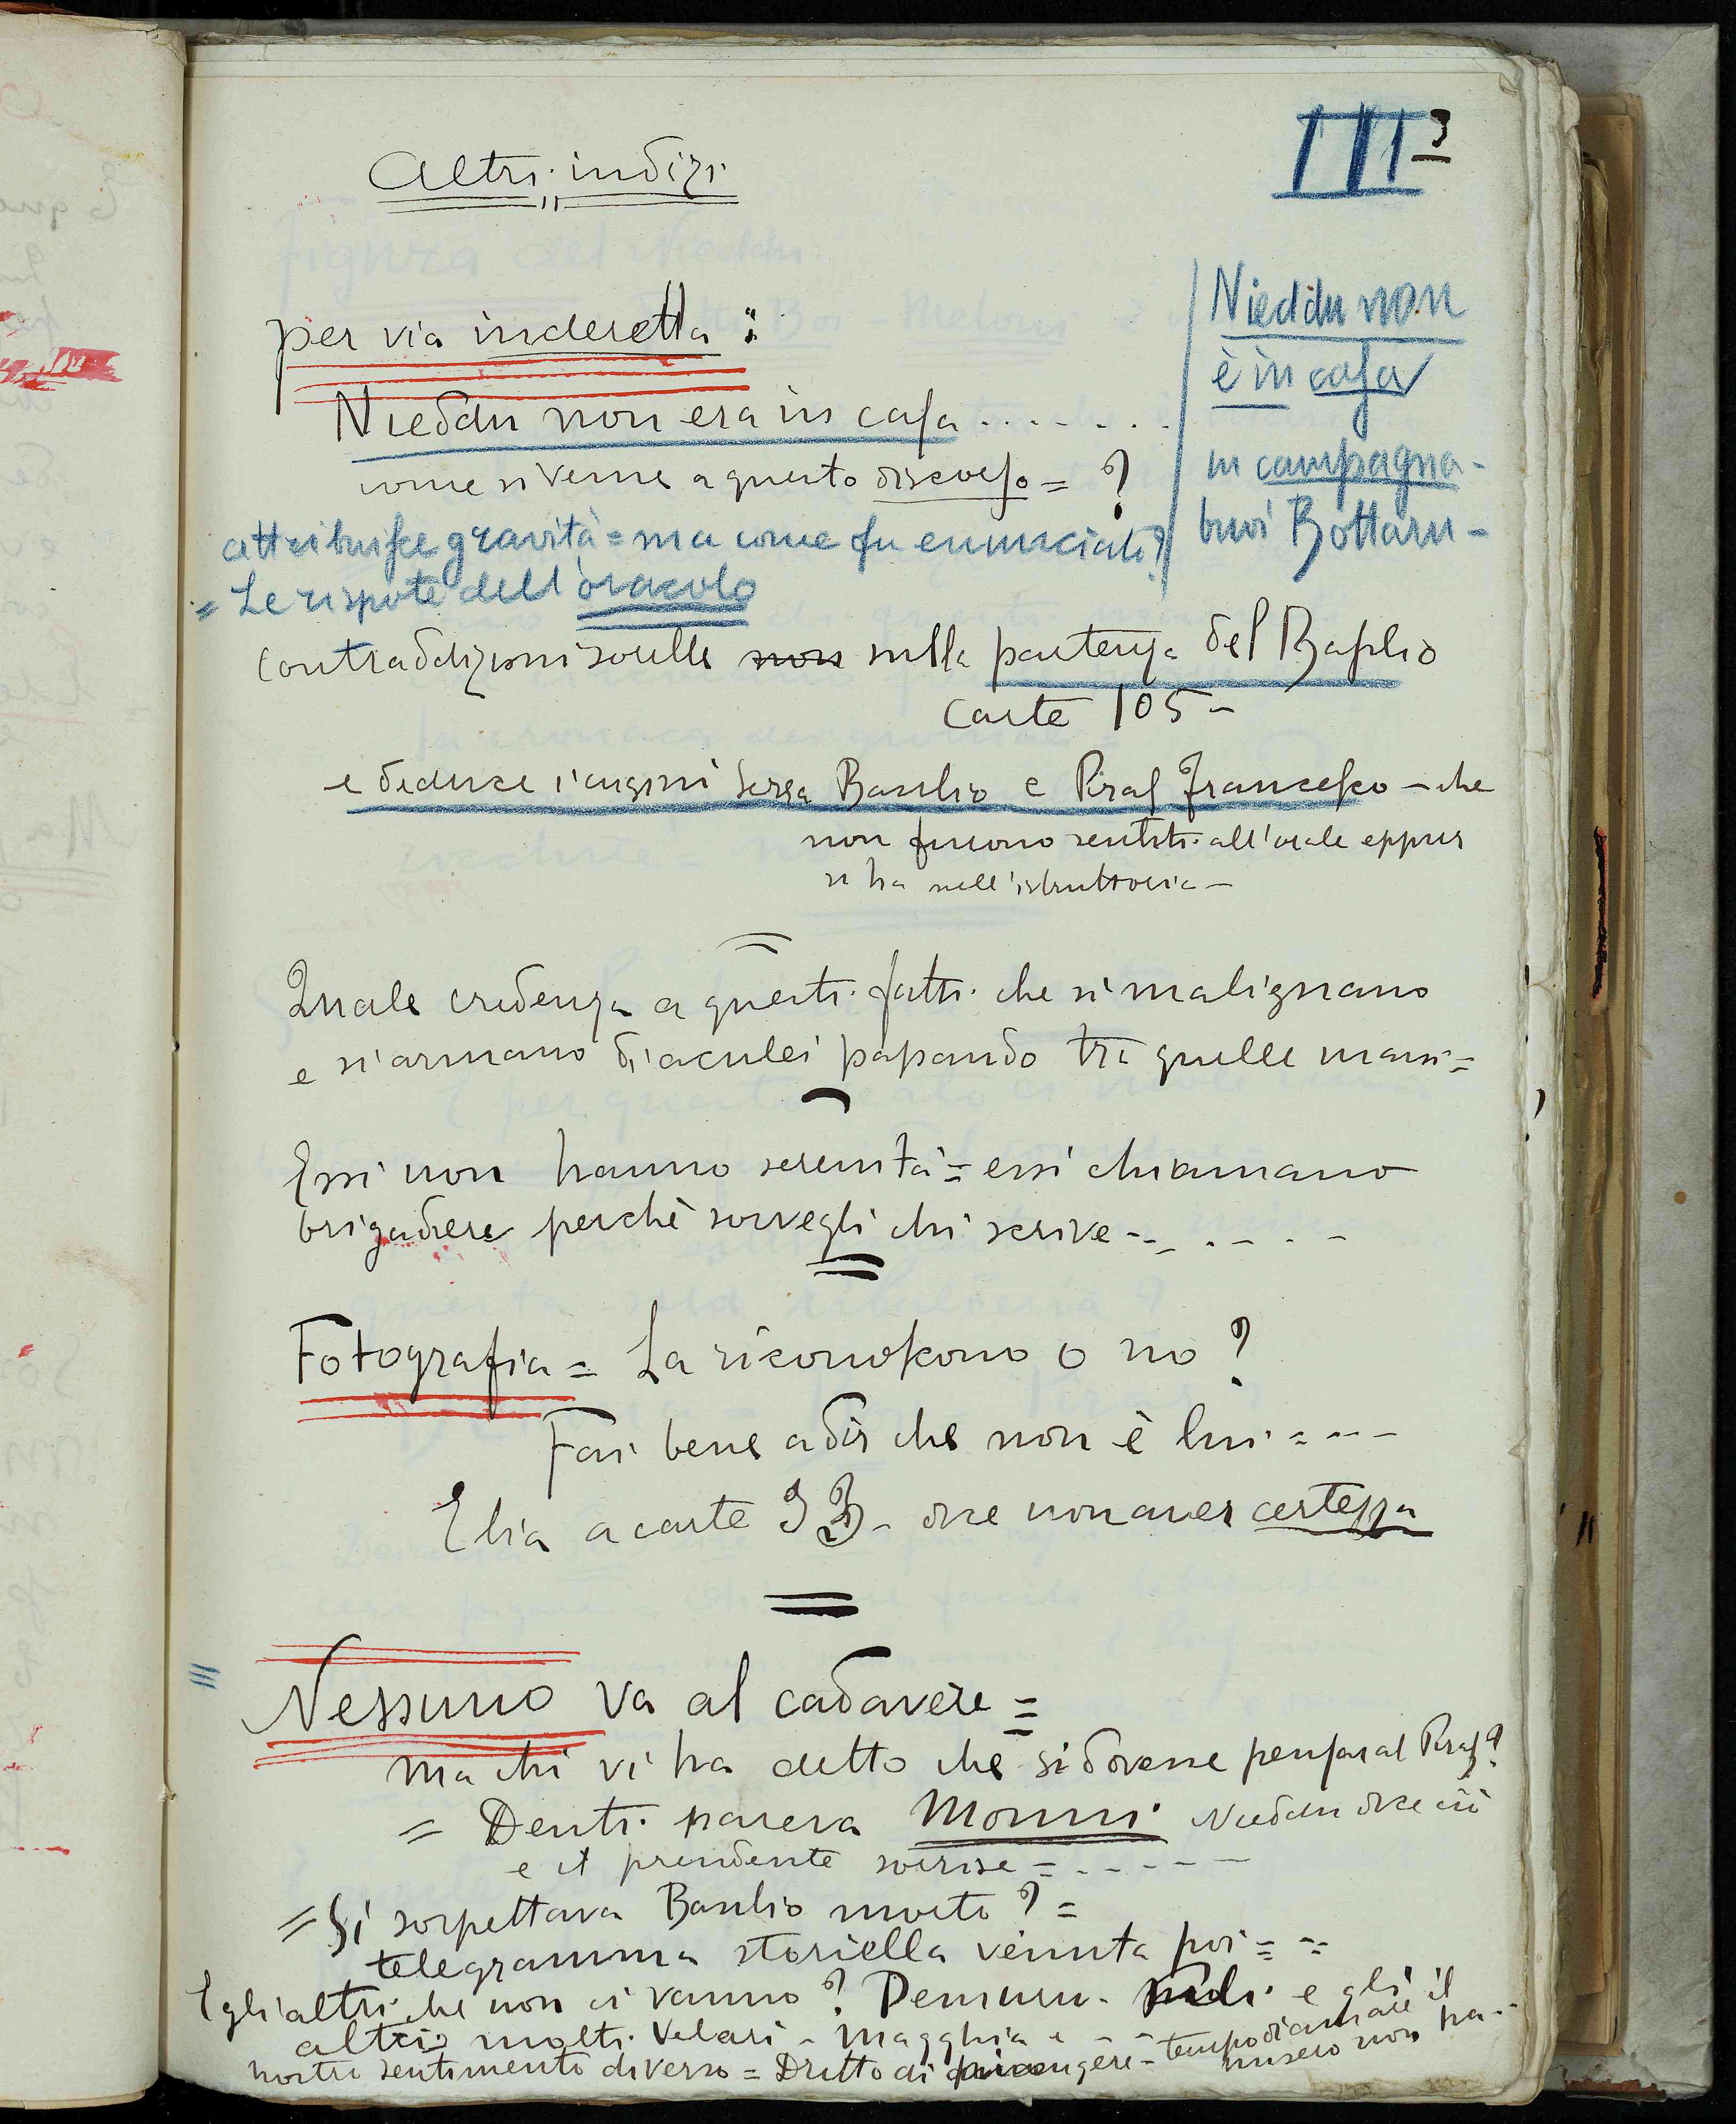 III 3
Altri indizi
per via inderetta:
Nieddu non era in casa .......
come si venne a questo discorso = ?
Nieddu non
è in casa
in campagna -
buoi Bottaru -
attribuisce gravità = ma come fu enunciato?
= Le rispote dell'oracolo
Contraddizioni sulla partenza del Basilio
Carte 105 -
e deduce i cugini Serra Basilio e Piras Francesco - che
non furono sentiti all'orale eppur
si ha nell'istruttoria -
Quale credenza a questi fatti che si malignano
e si armano di aculei passando tri quelle mani =
Essi non hanno serenità = essi chiamano
brigadiere perchè sorvegli chi scrive - - - - -
Fotografia = La riconoscono o no?
Fai bene a dir che non è lui = - - -
Elia a carte 93 - dice non aver certezza
Nessuno va al cadavere =
ma chi vi ha detto che si dovesse pensar al Piras?
= Denti pareva Monni Nieddu dice ciò
e il presidente sorrise = - - - - -
= Si sospettava Basilio morto? =
telegramma storiella venuta poi = =
E gli altri che non ci vanno? Demuru - e gli
altri molti Velari - Magghia e - -
nostro sentimento diverso = Dritto di piangere - tempo
misero non ha - -